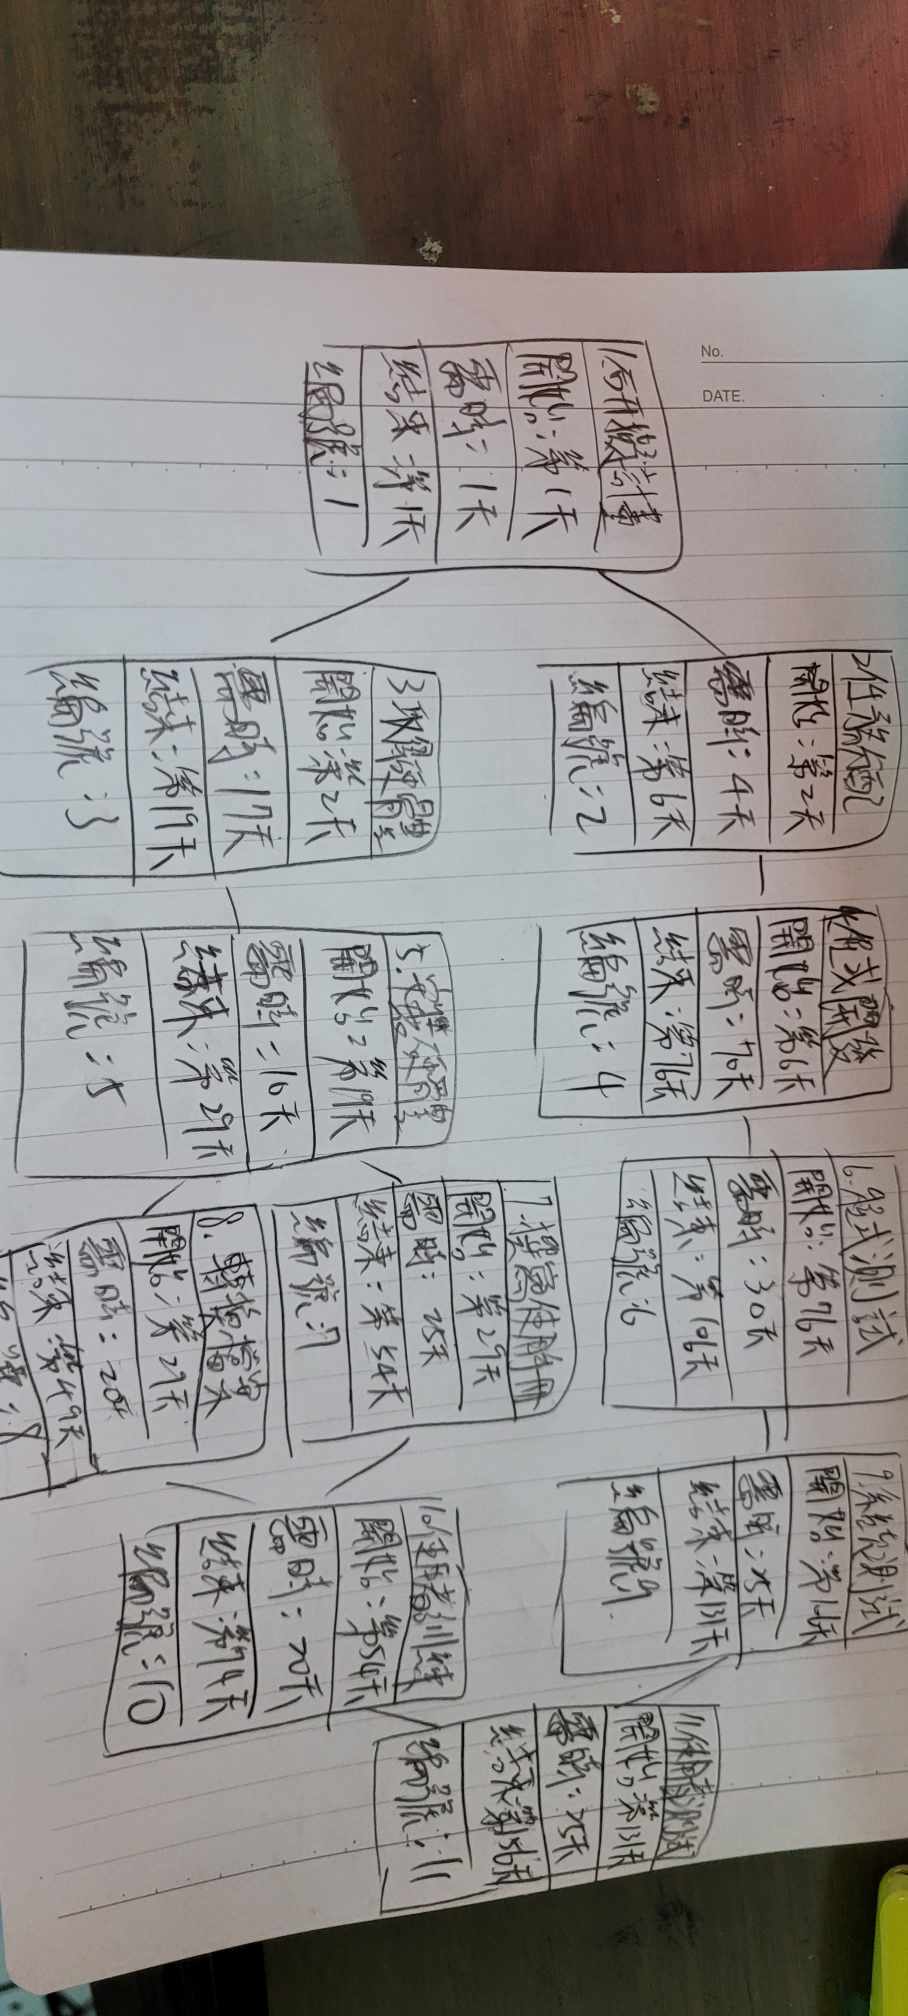 No.
DATE.
開始：第1天
需時：1天
結束：第1天
編號：1
2任務分配
開始：第2天
需時：4天
結束：第6天
編號：2
開始：第2天
需時：17天
結束：第19天
編號：3
開始：第6天
需時：70天
結束：第76天
編號：4
開始：第19天
需時：10天
結束：第29天
編號：5
6.程式測試
開始：第76天
需時：30天
結束：第106天
編號：6
開始：第29天
需時：25天
結束：第54天
編號：7
開始：第29天
需時：20天
結束：第49天
編號：8
9.系統測試
需時：25天
結束：第131天
編號：9
10.使用者訓練
開始：第54天
需時：20天
結束：第74天
編號：10
11使用者測試
開始：第131天
需時：25天
結束：第156天
編號：11